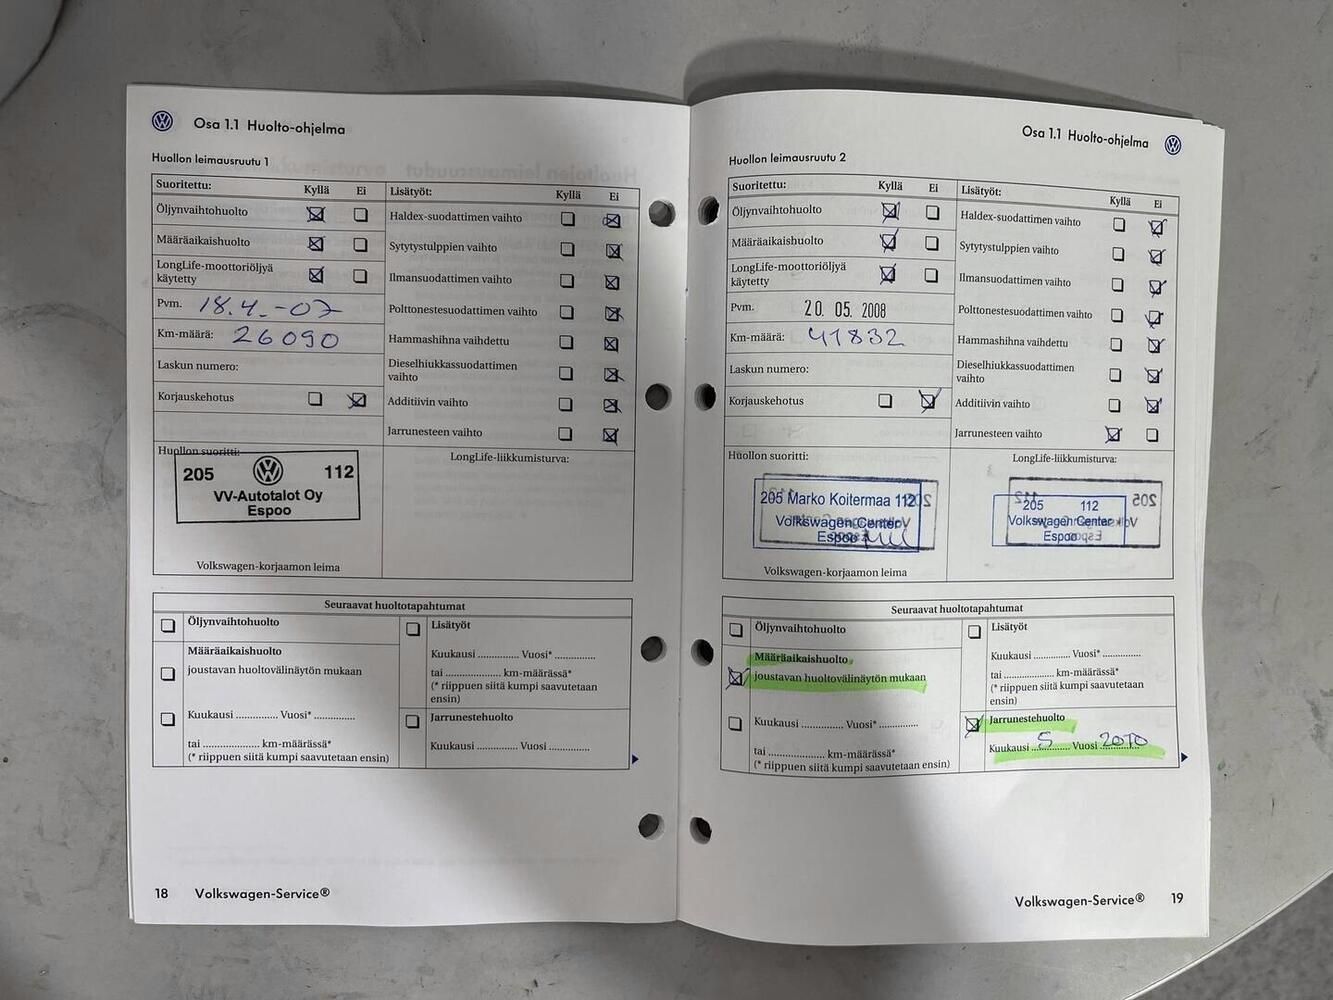 Osa 1.1 Huolto-ohjelma
Huollon leimausruutu 1
Suoritettu: Kyllä Ei
Öljynvaihtohuolto
Määräaikaishuolto
LongLife-moottoriöljyä
käytetty
Pvm. 18.4.-07
Km-määrä: 26090
Laskun numero:
Korjauskehotus
Lisätyöt: Kyllä Ei
Haldex-suodattimen vaihto
Sytytystulppien vaihto
Ilmansuodattimen vaihto
Polttonestesuodattimen vaihto
Hammashihna vaihdettu
Dieselhiukkassuodattimen
vaihto
Additiivin vaihto
Jarrunesteen vaihto
Huollon suoritti:
205 112
VV-Autotalot Oy
Espoo
Volkswagen-korjaamon leima
LongLife-liikkumisturva:
Seuraavat huoltotapahtumat
Öljynvaihtohuolto
Määräaikaishuolto
joustavan huoltovälinäytön mukaan
Kuukausi .............. Vuosi* .............
tai ................... km-määrässä*
(* riippuen siitä kumpi saavutetaan ensin)
Lisätyöt
Kuukausi .............. Vuosi* .............
tai ................... km-määrässä*
(* riippuen siitä kumpi saavutetaan
ensin)
Jarrunestehuolto
Kuukausi .............. Vuosi .............
18 Volkswagen-Service®
Osa 1.1 Huolto-ohjelma
Huollon leimausruutu 2
Suoritettu: Kyllä Ei
Öljynvaihtohuolto
Määräaikaishuolto
LongLife-moottoriöljyä
käytetty
Pvm. 20. 05. 2008
Km-määrä: 41832
Laskun numero:
Korjauskehotus
Lisätyöt: Kyllä Ei
Haldex-suodattimen vaihto
Sytytystulppien vaihto
Ilmansuodattimen vaihto
Polttonestesuodattimen vaihto
Hammashihna vaihdettu
Dieselhiukkassuodattimen
vaihto
Additiivin vaihto
Jarrunesteen vaihto
Huollon suoritti:
205 Marko Koitermaa 112
Volkswagen Center
Espoo
Volkswagen-korjaamon leima
LongLife-liikkumisturva:
205 112
Volkswagen Center
Espoo
Seuraavat huoltotapahtumat
Öljynvaihtohuolto
Määräaikaishuolto
joustavan huoltovälinäytön mukaan
Kuukausi .............. Vuosi* .............
tai ................... km-määrässä*
(* riippuen siitä kumpi saavutetaan ensin)
Lisätyöt
Kuukausi .............. Vuosi* .............
tai ................... km-määrässä*
(* riippuen siitä kumpi saavutetaan
ensin)
Jarrunestehuolto
Kuukausi 5 Vuosi 2010
Volkswagen-Service® 19